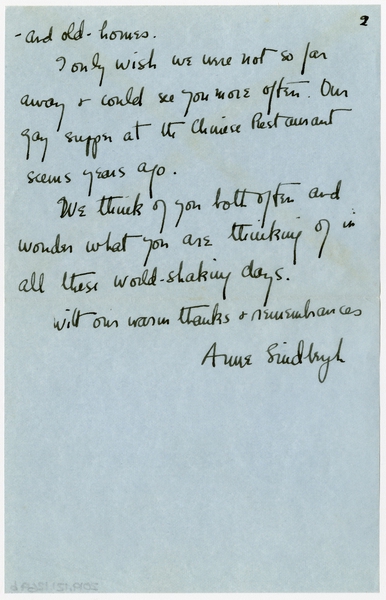 2
- and old - homes.
I only wish we were not so far
away & could see you more often. Our
gay supper at the Chinese Restaurant
seems years ago.
We think of you both often and
wonder what you are thinking of in
all these world-shaking days.
With our warm thanks & remembrances
Anne Lindbergh